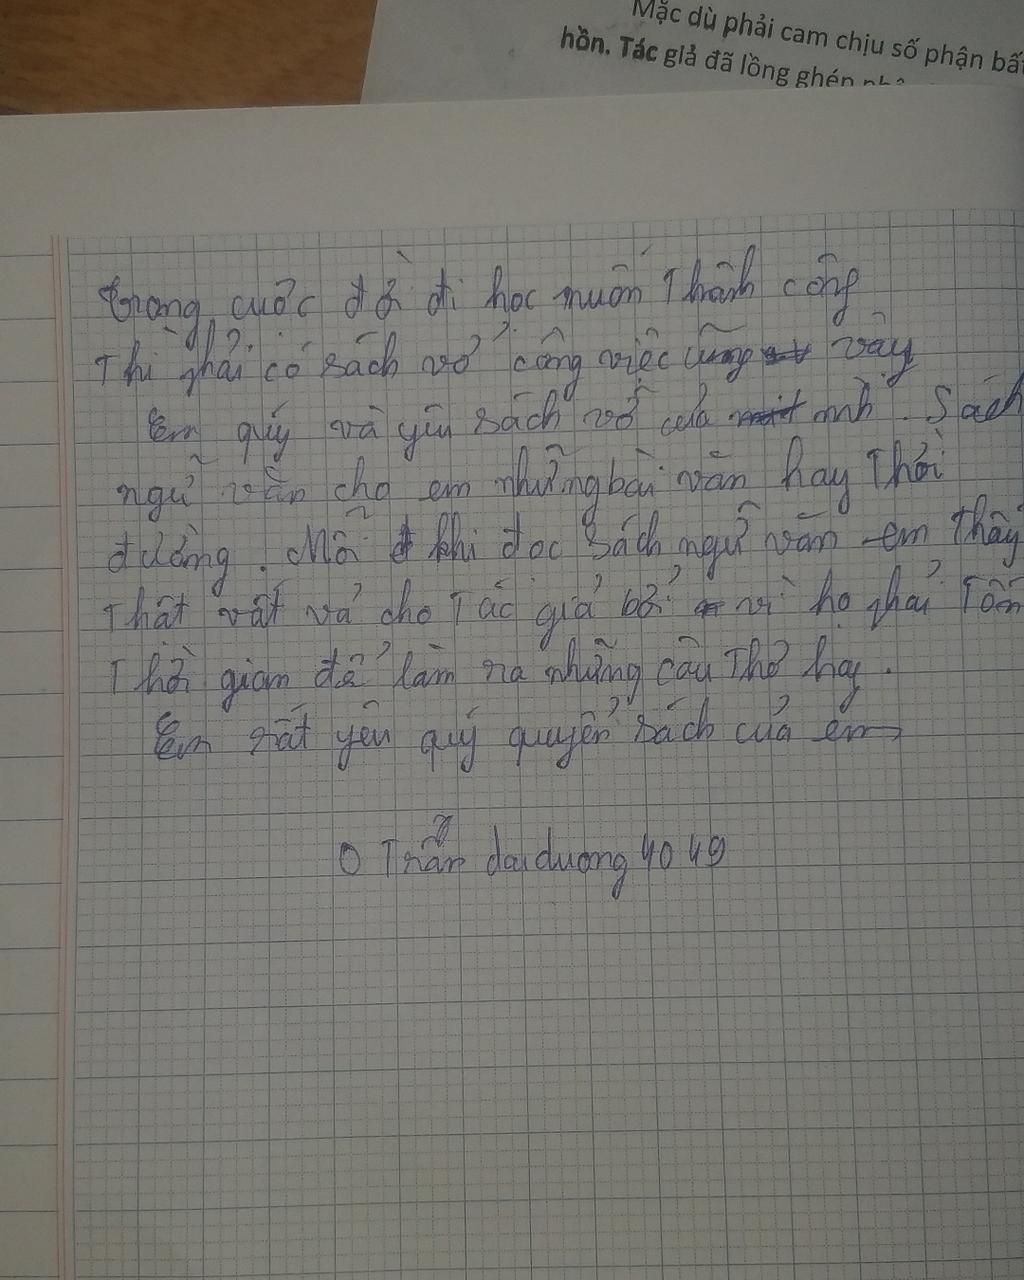 Mặc dù phải cam chịu số phận bất
hồn. Tác giả đã lồng ghép
trong cuốc đời đi học muốn Thành công
Thì phải có sách vở công việc cũng vậy
Em quý và yêu sách vở của mình. Sách
ngữ văn cho em những bài văn hay Thời
đường. Mỗi khi đọc sách ngữ văn em thấy
Thật vất vả cho Tác giả bởi vì họ phải Tốn
Thời gian để làm ra những câu Thơ hay.
Em rất yêu quý quyển sách của em
Trần dai duong 4049